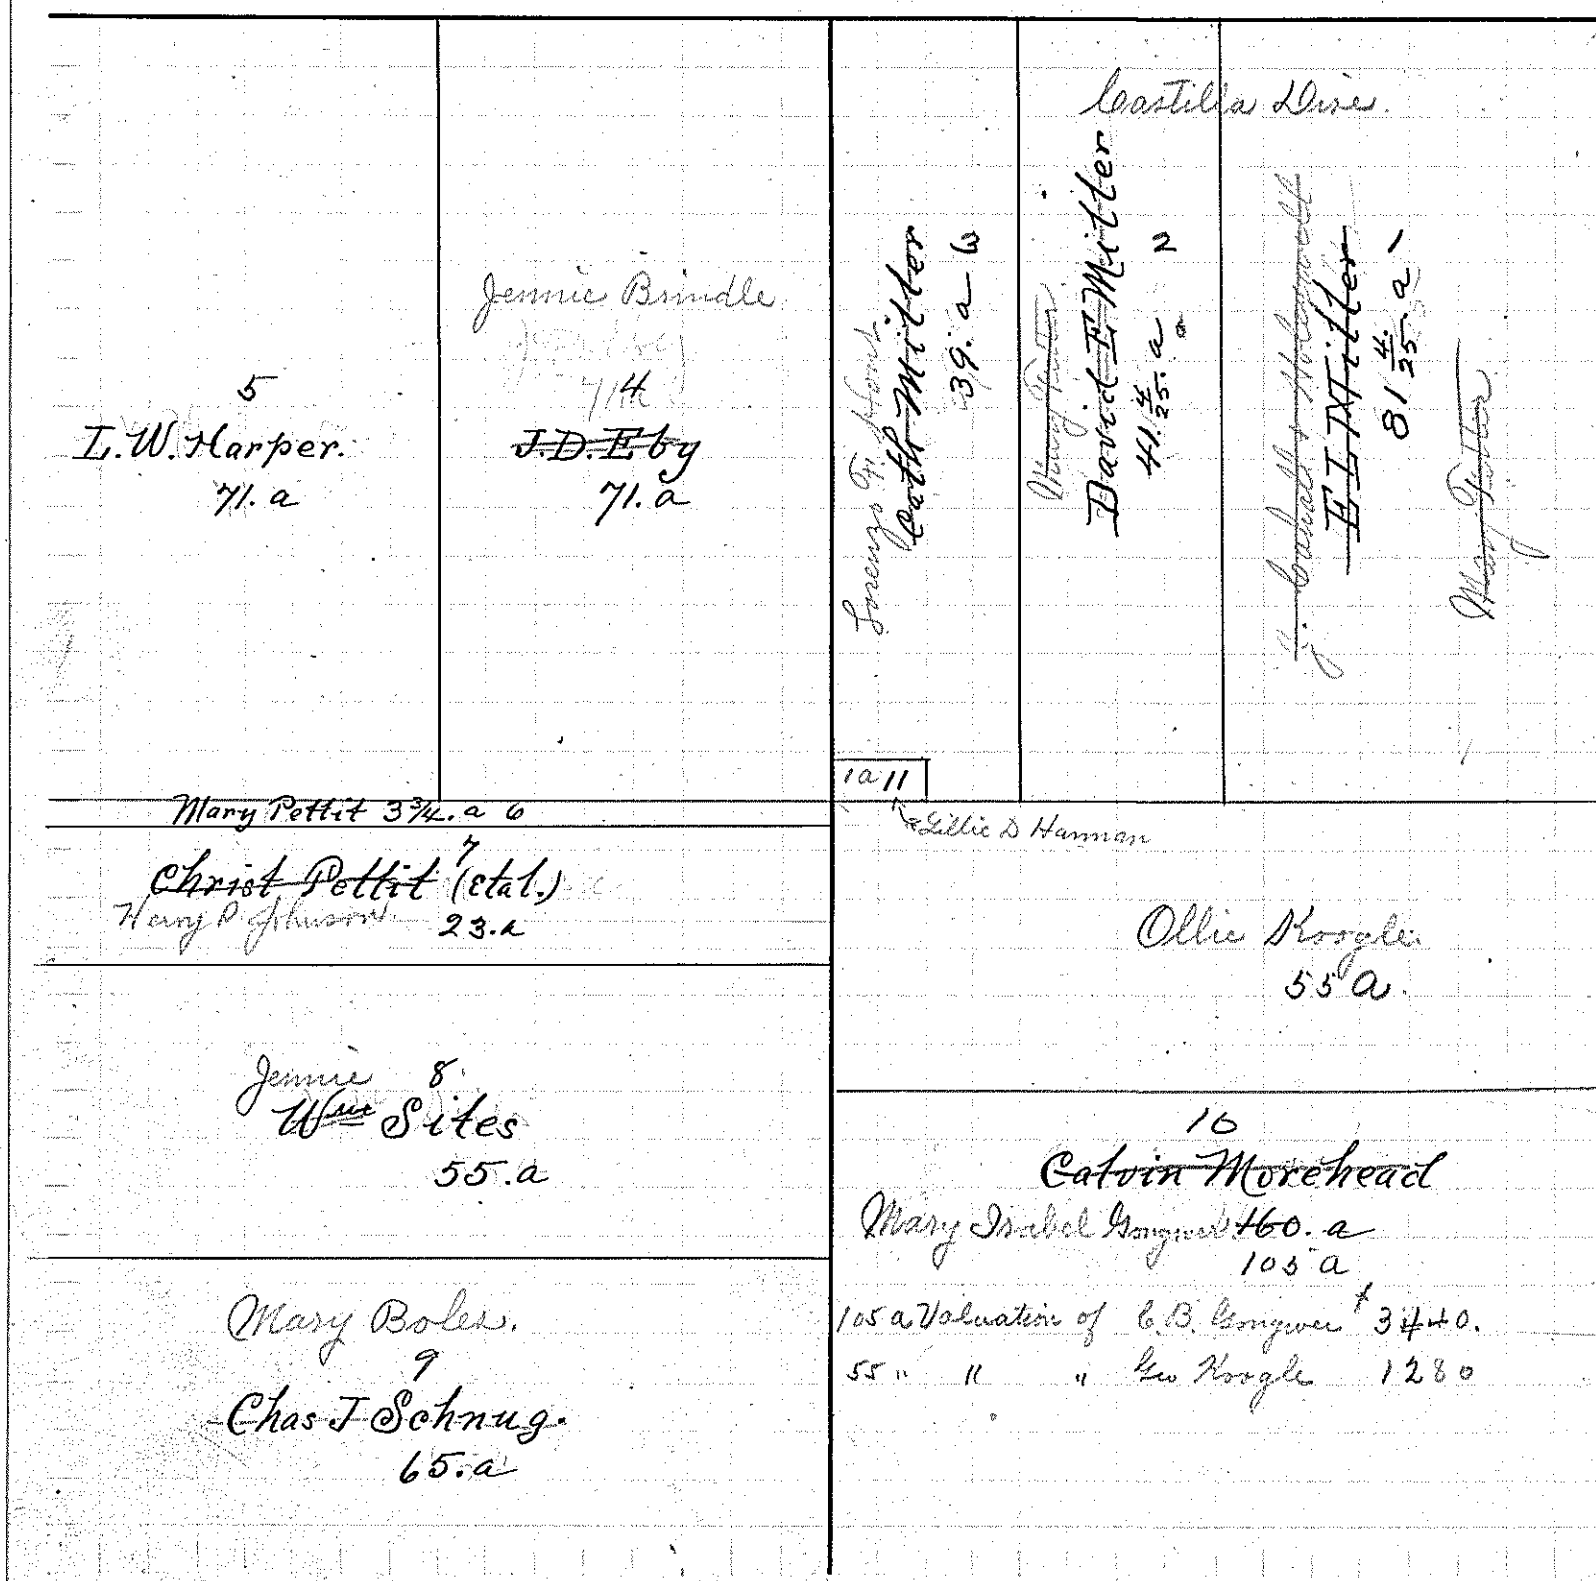 5
L. W. Harper.
71. a
Jennie Brindle
4
J. D. Eby
71. a
Lorenzo F.
Cath Miller
39. a 3
David E Miller
41. 4/25. a 2
Castilla Dise.
E L Miller
81 4/25. a 1
Mary
1a 11
Lillie D Hannan
Mary Pettit 3 3/4. a 6
7
Christ Pettit (etal.)
Harry P. Johnson
23. a
Ollie Koogle
55 a.
Jennie 8
Wm Sites
55. a
10
Calvin Morehead
Mary Isabel Gongwer 160. a
105 a
105 a Valuation of C. B. Gongwer 3440.
55 " " " Geo Koogle 1280
Mary Boles.
9
Chas J Schnug.
65. a